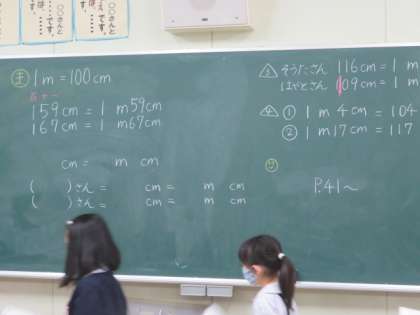 ○○さんと
は、…
…です。
○○さんと
…です。
は、…
主 1m=100cm
159cm = 1m59cm
167cm = 1m67cm
cm = m cm
( )さん= cm = m cm
( )さん= cm = m cm
そうたさん 116cm = 1m
はやとさん 109cm = 1m
① 1m4cm = 104
② 1m17cm = 117
P.41~